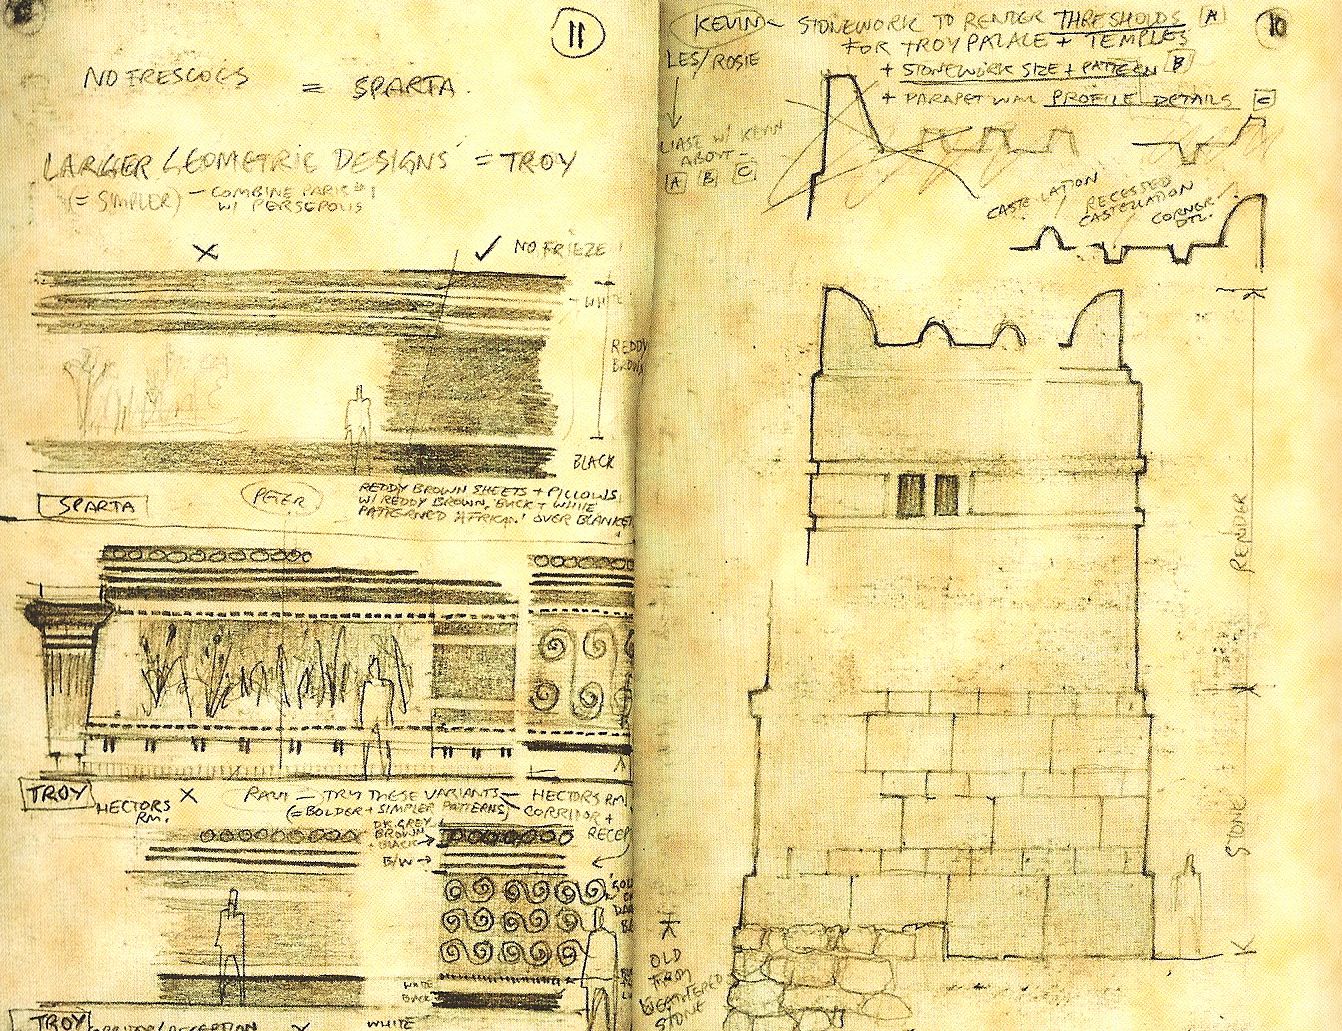 11
NO FRESCOES = SPARTA.
LARGER GEOMETRIC DESIGNS = TROY
(= SIMPLER) - COMBINE PARIS #1
W/ PERSEPOLIS
X ✓ NO FRIEZE
WHITE
REDDY
BROWN
BLACK
SPARTA
PETER
REDDY BROWN SHEETS + PILLOWS
W/ REDDY BROWN, BLACK + WHITE
PATTERNED 'AFRICAN' OVER BLANKET
TROY
HECTORS
RM.
X
TRY THESE VARIANTS
(= BOLDER + SIMPLER PATTERNS)
HECTORS RM.
CORRIDOR +
RECEP
DK. GREY
BROWN
+ BLACK →
B/W →
WHITE
BLACK
TROY
CORRIDOR/RECEPTION X
WHITE
10
KEVIN - STONEWORK TO RENDER THRESHOLDS [A]
FOR TROY PALACE + TEMPLES
+ STONEWORK SIZE + PATTERN [B]
+ PARAPET WALL PROFILE DETAILS [C]
LES/ROSIE
LIASE W/ KEVIN
ABOUT -
[A] [B] [C]
CASTELLATION
RECESSED
CASTELLATION
CORNER
DTL.
RENDER
STONE
OLD
TROY
WEATHERED
STONE